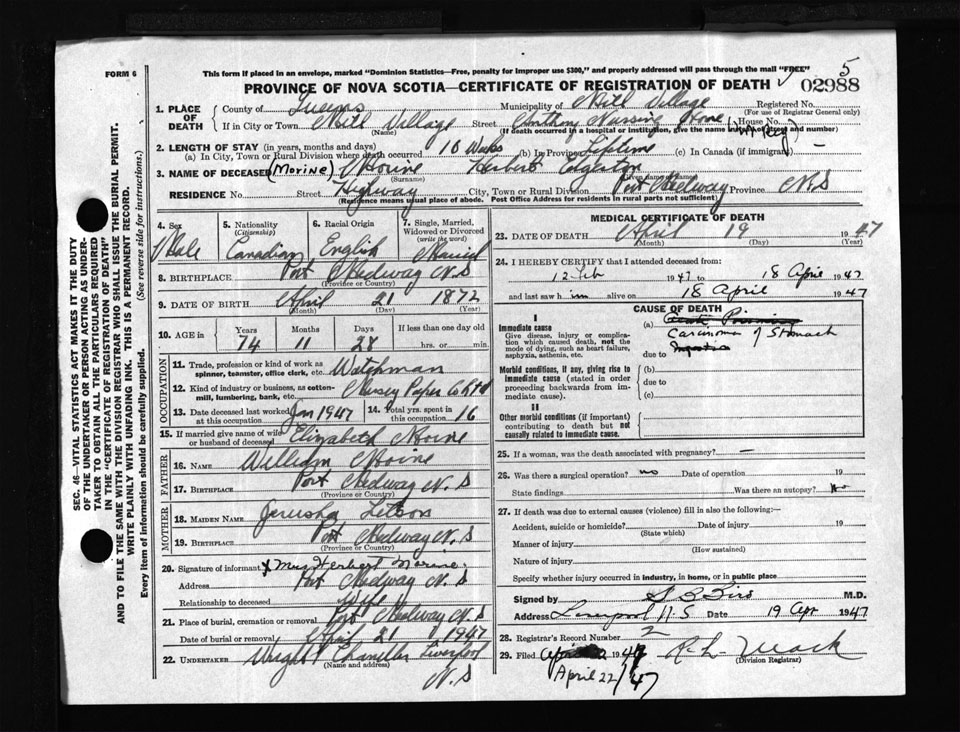 This form if placed in an envelope, marked "Dominion Statistics—Free, penalty for improper use $300," and properly addressed will pass through the mail "FREE"
FORM 6
5
PROVINCE OF NOVA SCOTIA—CERTIFICATE OF REGISTRATION OF DEATH
02988
1. PLACE OF DEATH County of Queens Municipality of Mill Village Registered No.
(For use of Registrar General only)
If in City or Town Mill Village Street Anthony Nursing Home House No.
(Name) (If death occurred in a hospital or institution, give the name instead of street and number)
2. LENGTH OF STAY (in years, months and days)
(a) In City, Town or Rural Division where death occurred 10 Weeks (b) In Province Lifetime (c) In Canada (if immigrant) —
3. NAME OF DECEASED (Morine) Morine Herbert
(Surname)
RESIDENCE No. Street Highway City, Town or Rural Division Port Medway Province N.S
(Residence means usual place of abode. Post Office Address for residents in rural parts not sufficient)
4. Sex Male
5. Nationality (Citizenship) Canadian
6. Racial Origin English
7. Single, Married, Widowed or Divorced (write the word) Married
8. BIRTHPLACE Port Medway N.S
(Province or Country)
9. DATE OF BIRTH April 21 1872
(Month) (Day) (Year)
10. AGE in Years 74 Months 11 Days 28 If less than one day old hrs. or min.
OCCUPATION
11. Trade, profession or kind of work as spinner, teamster, office clerk, etc. Watchman
12. Kind of industry or business, as cotton-mill, lumbering, bank, etc. Mersey Paper Co Ltd
13. Date deceased last worked at this occupation Jan 1947 14. Total yrs. spent in this occupation 16
15. If married give name of wife or husband of deceased Elizabeth Morine
FATHER
16. NAME William Morine
17. BIRTHPLACE Port Medway N.S
(Province or Country)
MOTHER
18. MAIDEN NAME Jerusha Letson
19. BIRTHPLACE Port Medway N.S
(Province or Country)
20. Signature of informant x Mrs Herbert Morine.
Address Port Medway N.S
Relationship to deceased Wife
21. Place of burial, cremation or removal Port Medway N.S
Date of burial or removal April 21 1947
22. UNDERTAKER Wright Chandler Liverpool
(Name and address)
N.S
MEDICAL CERTIFICATE OF DEATH
23. DATE OF DEATH April 19 1947
(Month) (Day) (Year)
24. I HEREBY CERTIFY that I attended deceased from:
12 Feb 1947 to 18 April 1947
and last saw him alive on 18 April 1947
CAUSE OF DEATH
I
Immediate cause
Give disease, injury or complication which caused death, not the mode of dying, such as heart failure, asphyxia, asthenia, etc.
(a) Carcinoma of Stomach
due to
Morbid conditions, if any, giving rise to immediate cause (stated in order proceeding backwards from immediate cause).
(b)
due to
(c)
II
Other morbid conditions (if important) contributing to death but not causally related to immediate cause.
25. If a woman, was the death associated with pregnancy? —
26. Was there a surgical operation? no Date of operation 19
State findings Was there an autopsy? no
27. If death was due to external causes (violence) fill in also the following:—
Accident, suicide or homicide? Date of injury 19
(State which)
Manner of injury
(How sustained)
Nature of injury
Specify whether injury occurred in industry, in home, or in public place
Signed by M.D.
Address Liverpool N.S Date 19 Apr 1947
28. Registrar's Record Number 2
29. Filed April 1947
April 22/47
(Division Registrar)
SEC. 46—VITAL STATISTICS ACT MAKES IT THE DUTY
OF THE UNDERTAKER OR PERSON ACTING AS UNDER-
TAKER TO OBTAIN ALL THE PARTICULARS REQUIRED
IN THE "CERTIFICATE OF REGISTRATION OF DEATH"
AND TO FILE THE SAME WITH THE DIVISION REGISTRAR WHO SHALL ISSUE THE BURIAL PERMIT.
WRITE PLAINLY WITH UNFADING INK. THIS IS A PERMANENT RECORD.
Every item of information should be carefully supplied. (See reverse side for instructions.)